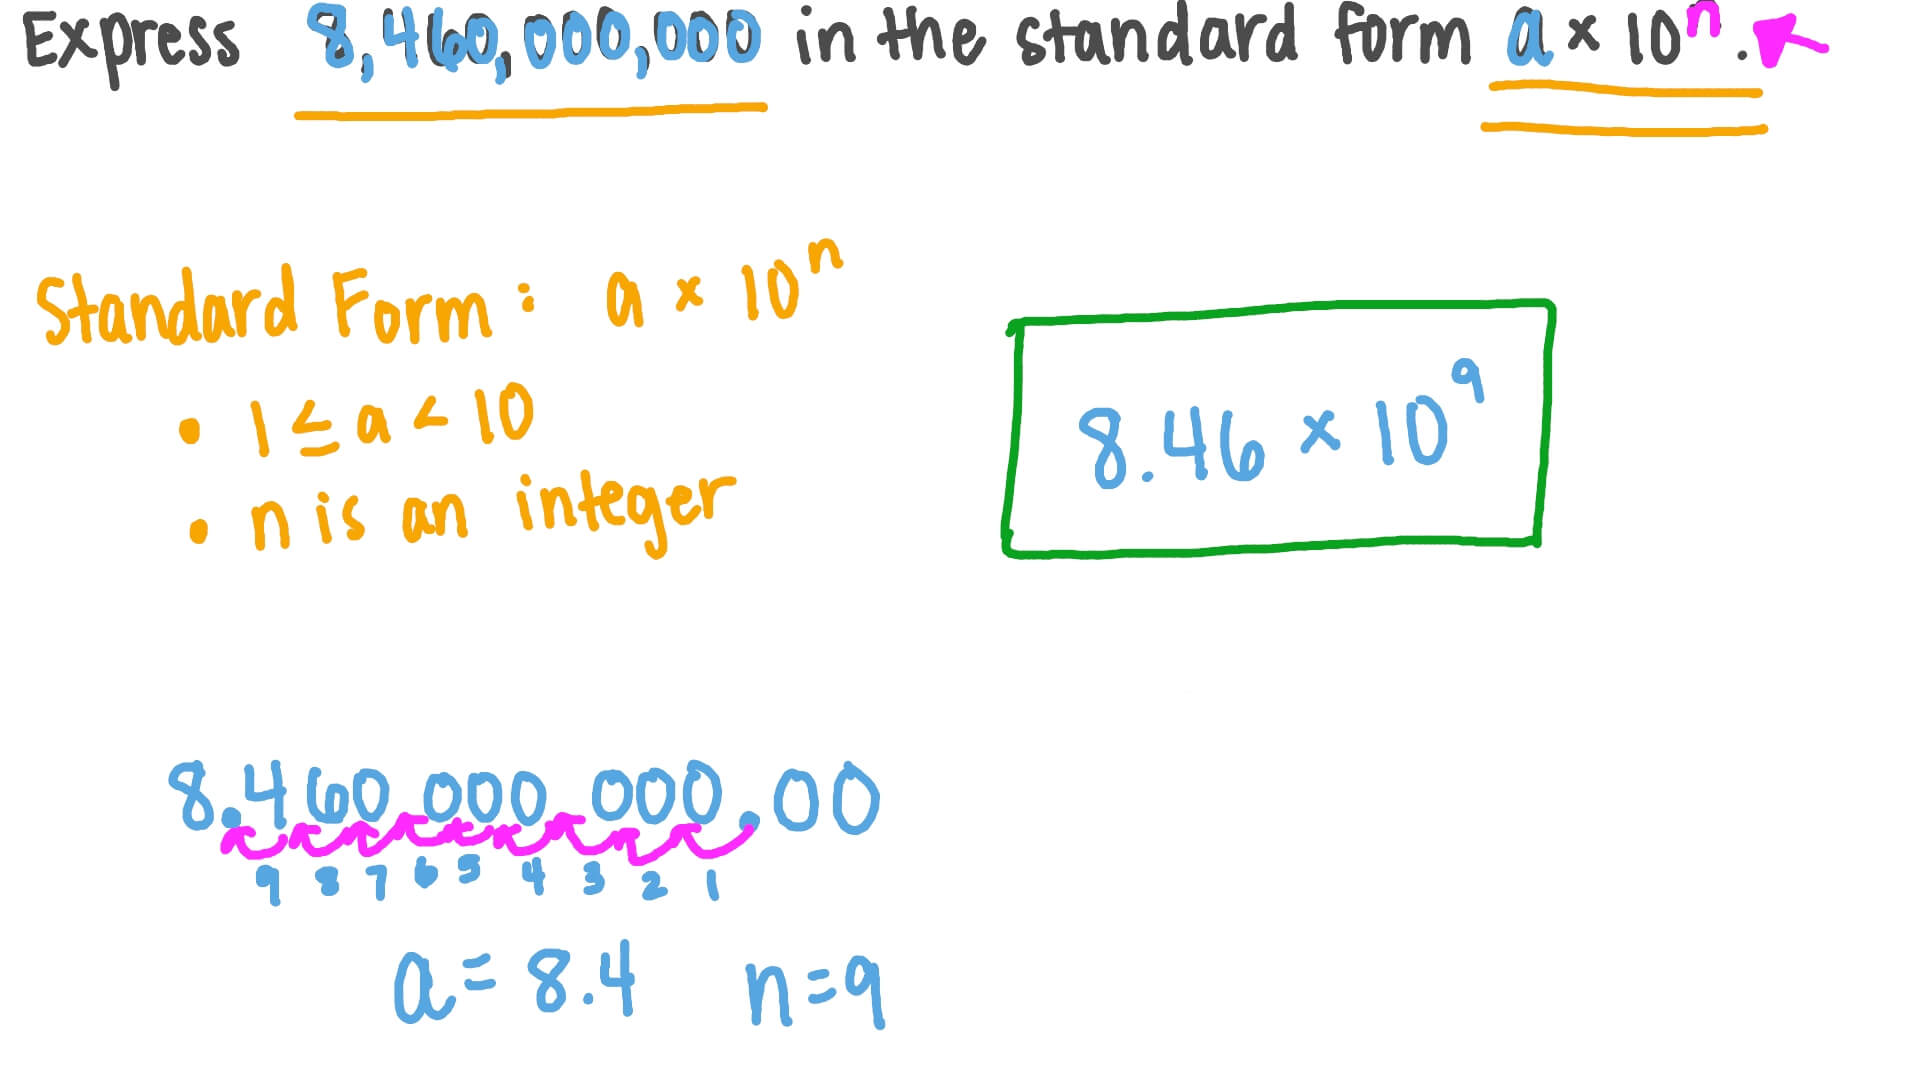 Express 8,460,000,000 in the standard form a × 10ⁿ.
Standard Form: a × 10ⁿ
• 1 ≤ a < 10
• n is an integer
8.46 × 10⁹
8.460 000 000.00
9 8 7 6 5 4 3 2 1
a = 8.4 n = 9